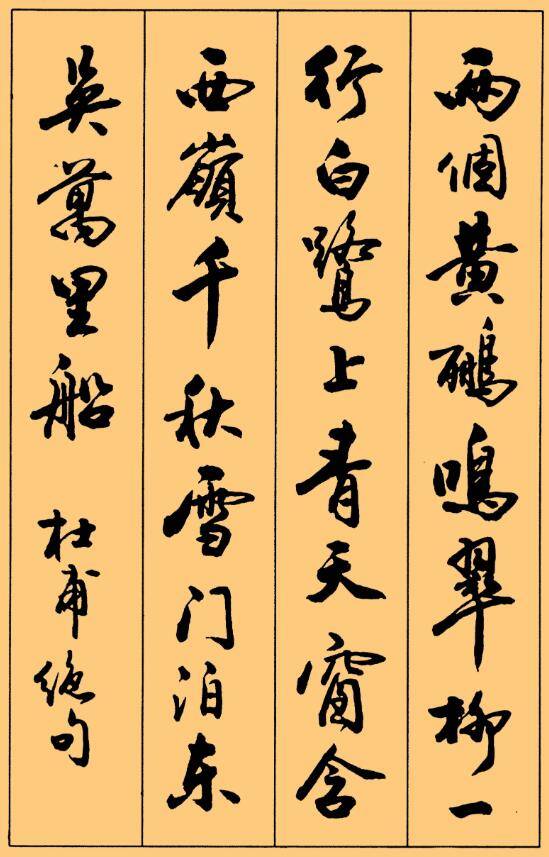 兩個黃鸝鳴翠柳一
行白鷺上青天窗含
西嶺千秋雪门泊东
吳萬里船 杜甫绝句